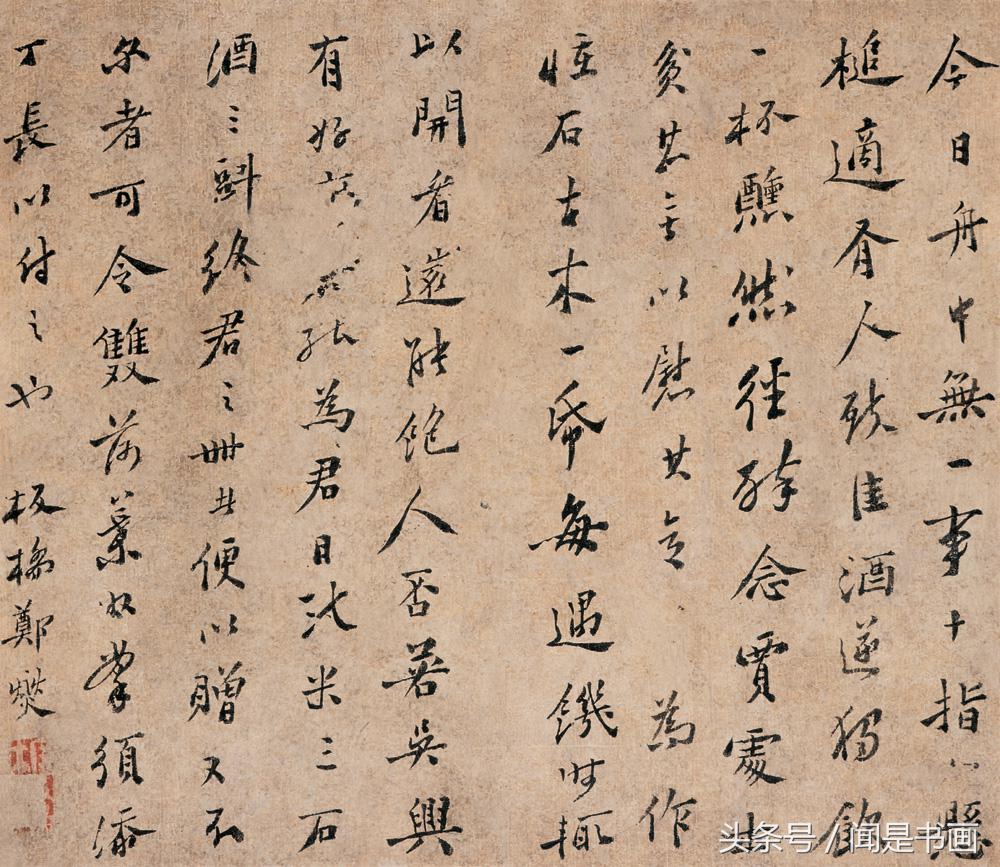 今日舟中無一事十指以懸
槌適有人致佳酒遂獨飲
一杯醺然徑醉念賈處士
貧甚無以慰其意為作
怪石古木一帋每遇饑時輒
以開看還能飽人否若吳興
有好為君日致米三石
酒三㪷終君之世便以贈又不
尒者可令雙荷葉收掌須添
丁長以付之也 板橋鄭燮
头条号 / 闻是书画